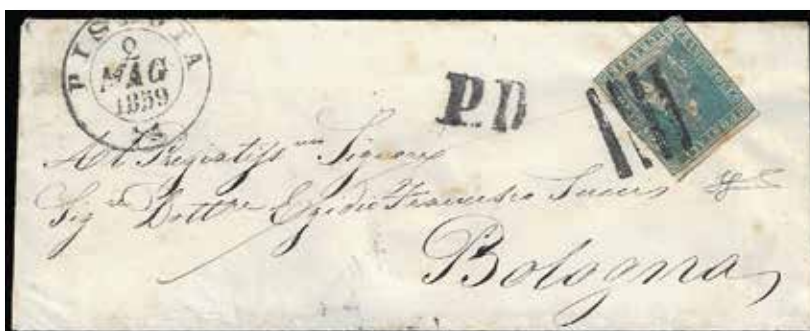 PISTOIA
9
MAG
1859
P.D
Al Pregiatiss mo Signore
Sig. Dott re Egidio Francesco
Bologna